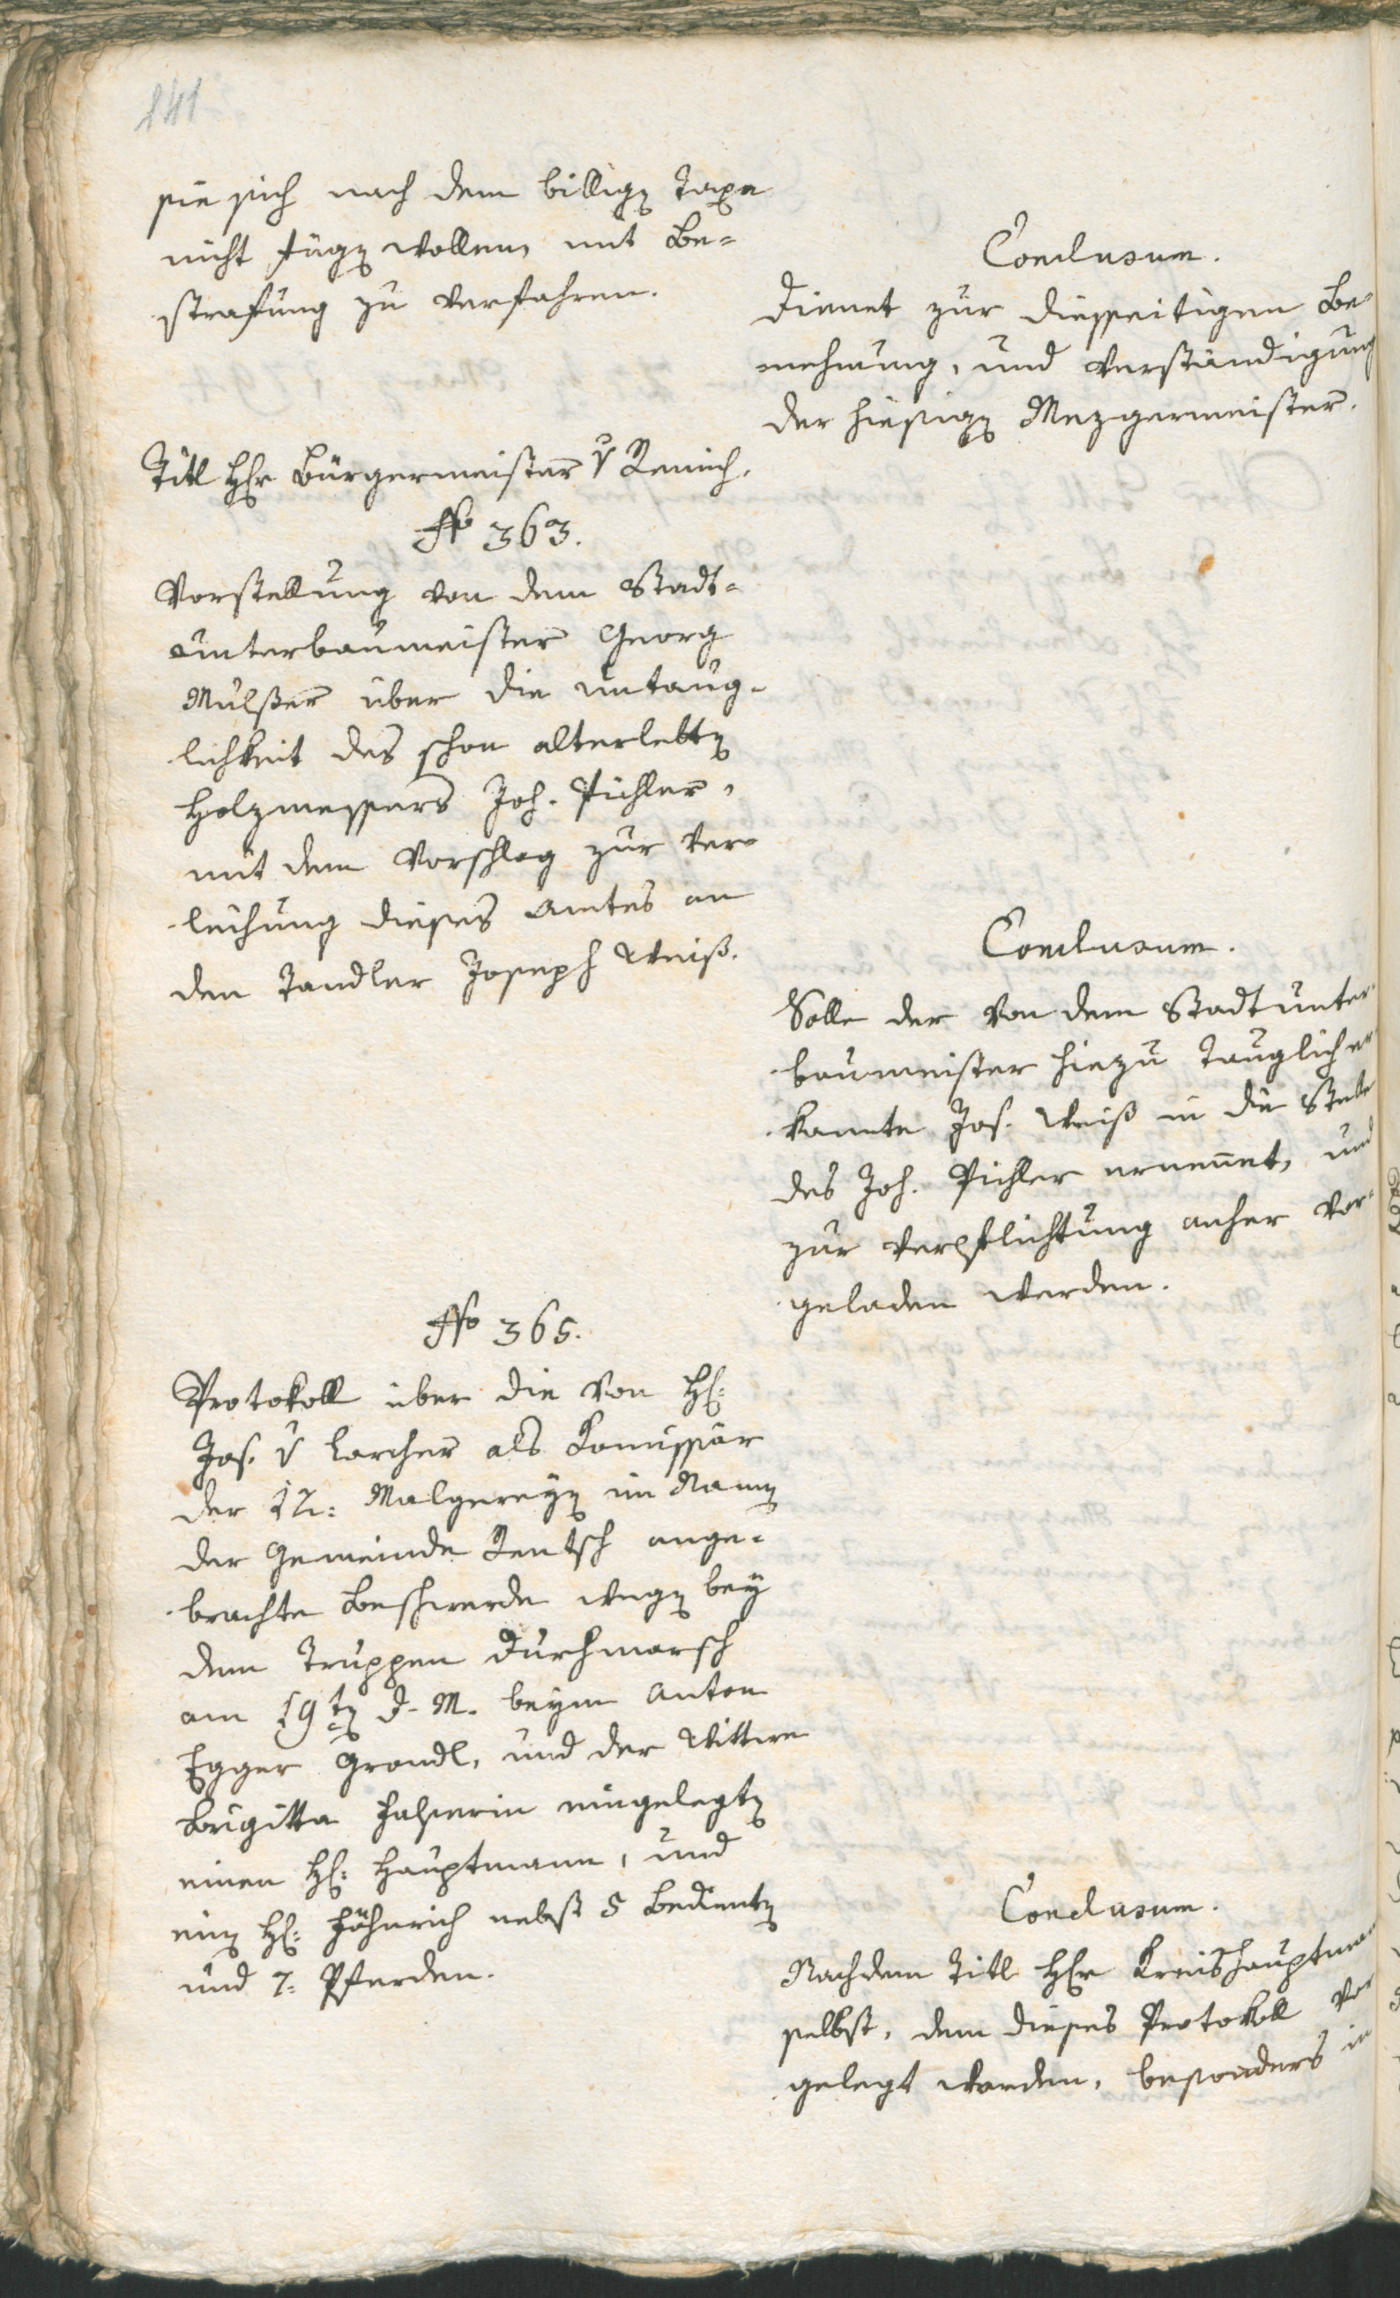 141
sie sich nach dem billigen Taxe
nicht fügen wollen, mit Be=
strafung zu verfahren.
Conclusum.
Dienet zur diesseitigen Be
nehmung, und Verständigung
der hiesigen Mezgermeister.
Titl Hr Bürgermeister v Remich.
No 363.
Vorstellung von dem Stadt=
unterbaumeister Georg
Mulßer über die Untaug=
lichkeit des schon alterlebten
Holzmessers Joh. Pichler,
mit dem Vorschlag zur Ver=
leihung dieses Amtes an
den Tandler Joseph Weiß.
Conclusum.
Solle der von dem Stadtunter
baumeister hiezu tauglich er
kannte Jos. Weiß in die Stelle
des Joh. Pichler ernennet, und
zur Verpflichtung anher vor=
geladen werden.
No 365.
Protokoll über die von H:
Jos. v Larcher als Komissär
der 12: Malgereyen im Namen
der Gemeinde Rentsch ange=
brachte Beschwerde wegen bey
dem Truppen Durchmarsch
am 19ten d. M. beym Anton
Egger Grandl, und der Wittwe
Brigitta eingelegten
einen H: Hauptmann, und
ein H: Fähnrich nebst 5 Bedienten
und 7: Pferden.
Conclusum.
Nachdem Titl Hr Kreishauptman
selbst, dem dieses Protokoll vor
gelegt worden, besonders in